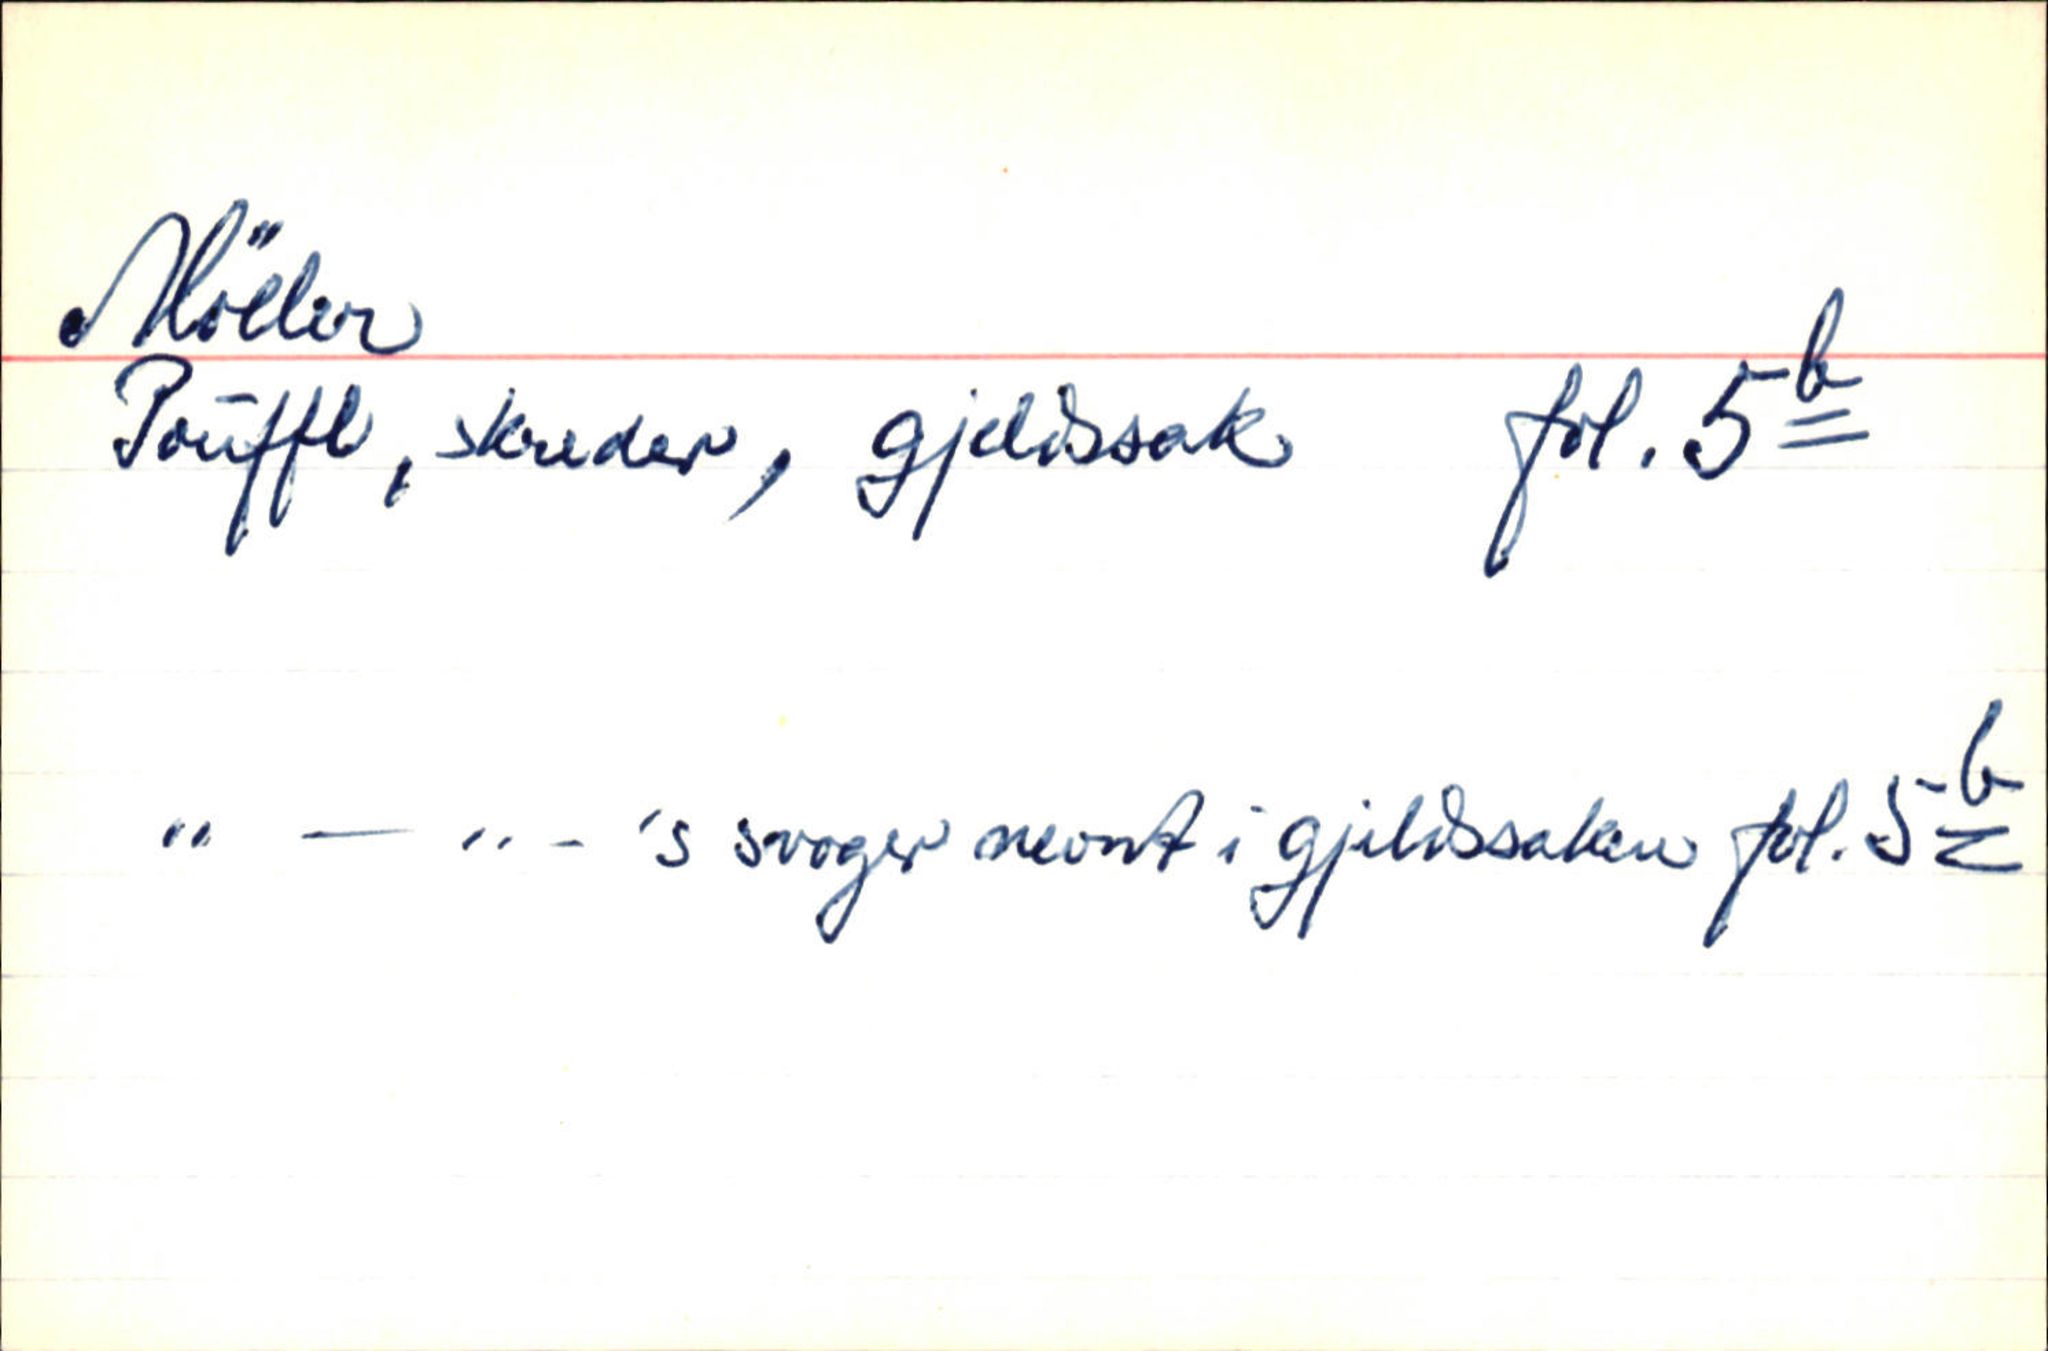 Möller
Poüffl, skreder, gjeldssak fol. 5b
" — " - 's svoger nevnt i gjeldssaken fol. 5b